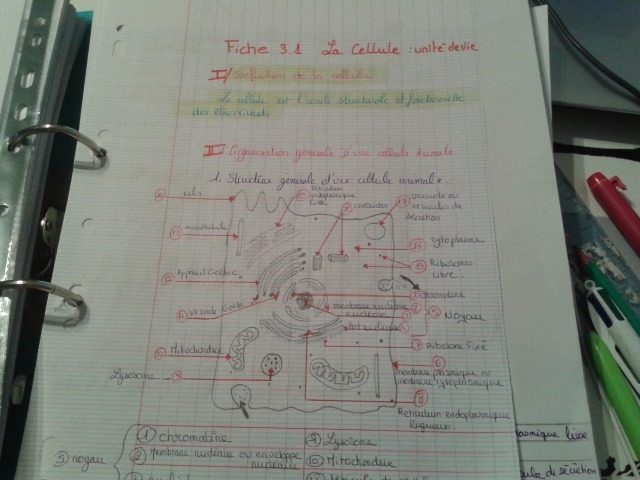 Fiche 3.1 La Cellule : unité de vie
I/ Définition de la cellule
La cellule est l'unité structurale et fonctionnelle
des êtres vivants
II Organisation générale D'une cellule Animale
1. Structure générale d'une cellule animale.
Réticulum
endoplasmique
lisse
centrioles
vacuole ou
vésicules de
sécrétion
microtubule
cytoplasme
Appareil Golgi
Ribosomes
libre
chromatine
vésicule Golgi
membrane nucléaire
nucléole
Noyau
Ribosome Fixé
Mitochondrie
Lysosome
membrane plasmique ou
membrane cytoplasmique
Réticulum endoplasmique
Rugueux.
3 noyau
1 chromatine
Lysosome
2 Membrane nucléaire ou enveloppe
nucléaire
10 Mitochondrie
plasmique lisse
ule de sécrétion